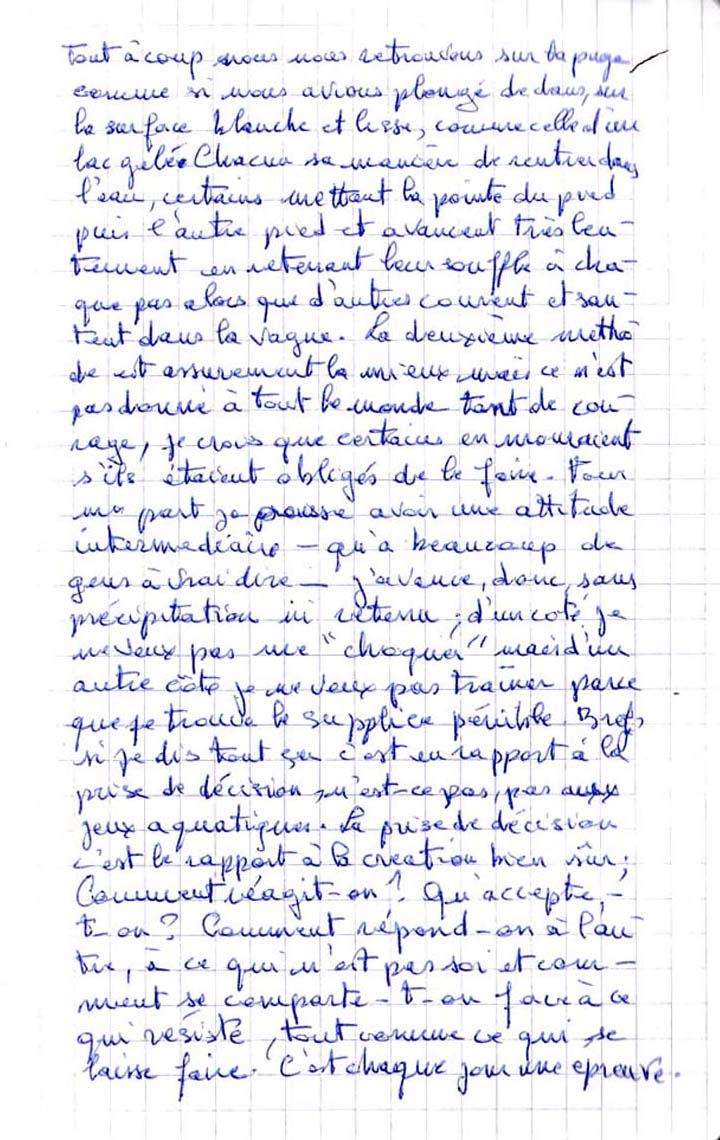 Tout à coup nous nous retrouvons sur la page
comme si nous avions plongé dedans, sur
la surface blanche et lisse, comme celle d'un
lac gelé. Chacun sa manière de rentrer dans
l'eau, certains mettent la pointe du pied
puis l'autre pied et avancent très len-
tement en retenant leur souffle à cha-
que pas alors que d'autres courent et sau-
tent dans la vague. La deuxième métho
de est assurement la mieux, mais ce n'est
pas donné à tout le monde tant de cou-
rage, je crois que certains en mouraient
s'ils étaient obligés de le faire. Pour
ma part je pense avoir une attitude
intermediaire — qu'a beaucoup de
gens à vrai dire — j'avance, donc, sans
précipitation ni retenu ; d'un coté je
ne veux pas me "choquer" mais d'un
autre côté je ne veux pas trainer parce
que je trouve le supplice pénible. Bref,
si je dis tout ça c'est en rapport à la
prise de décision, n'est-ce pas, pas aux
jeux aquatiques. La prise de décision
c'est le rapport à la creation bien sûr ;
Comment réagit-on ? Qu'accepte,-
t-on ? Comment répond-on à l'au
tre, à ce qui n'est pas soi et com-
ment se comporte-t-on face à ce
qui résiste, tout comme ce qui se
laisse faire. C'est chaque jour une epreuve.